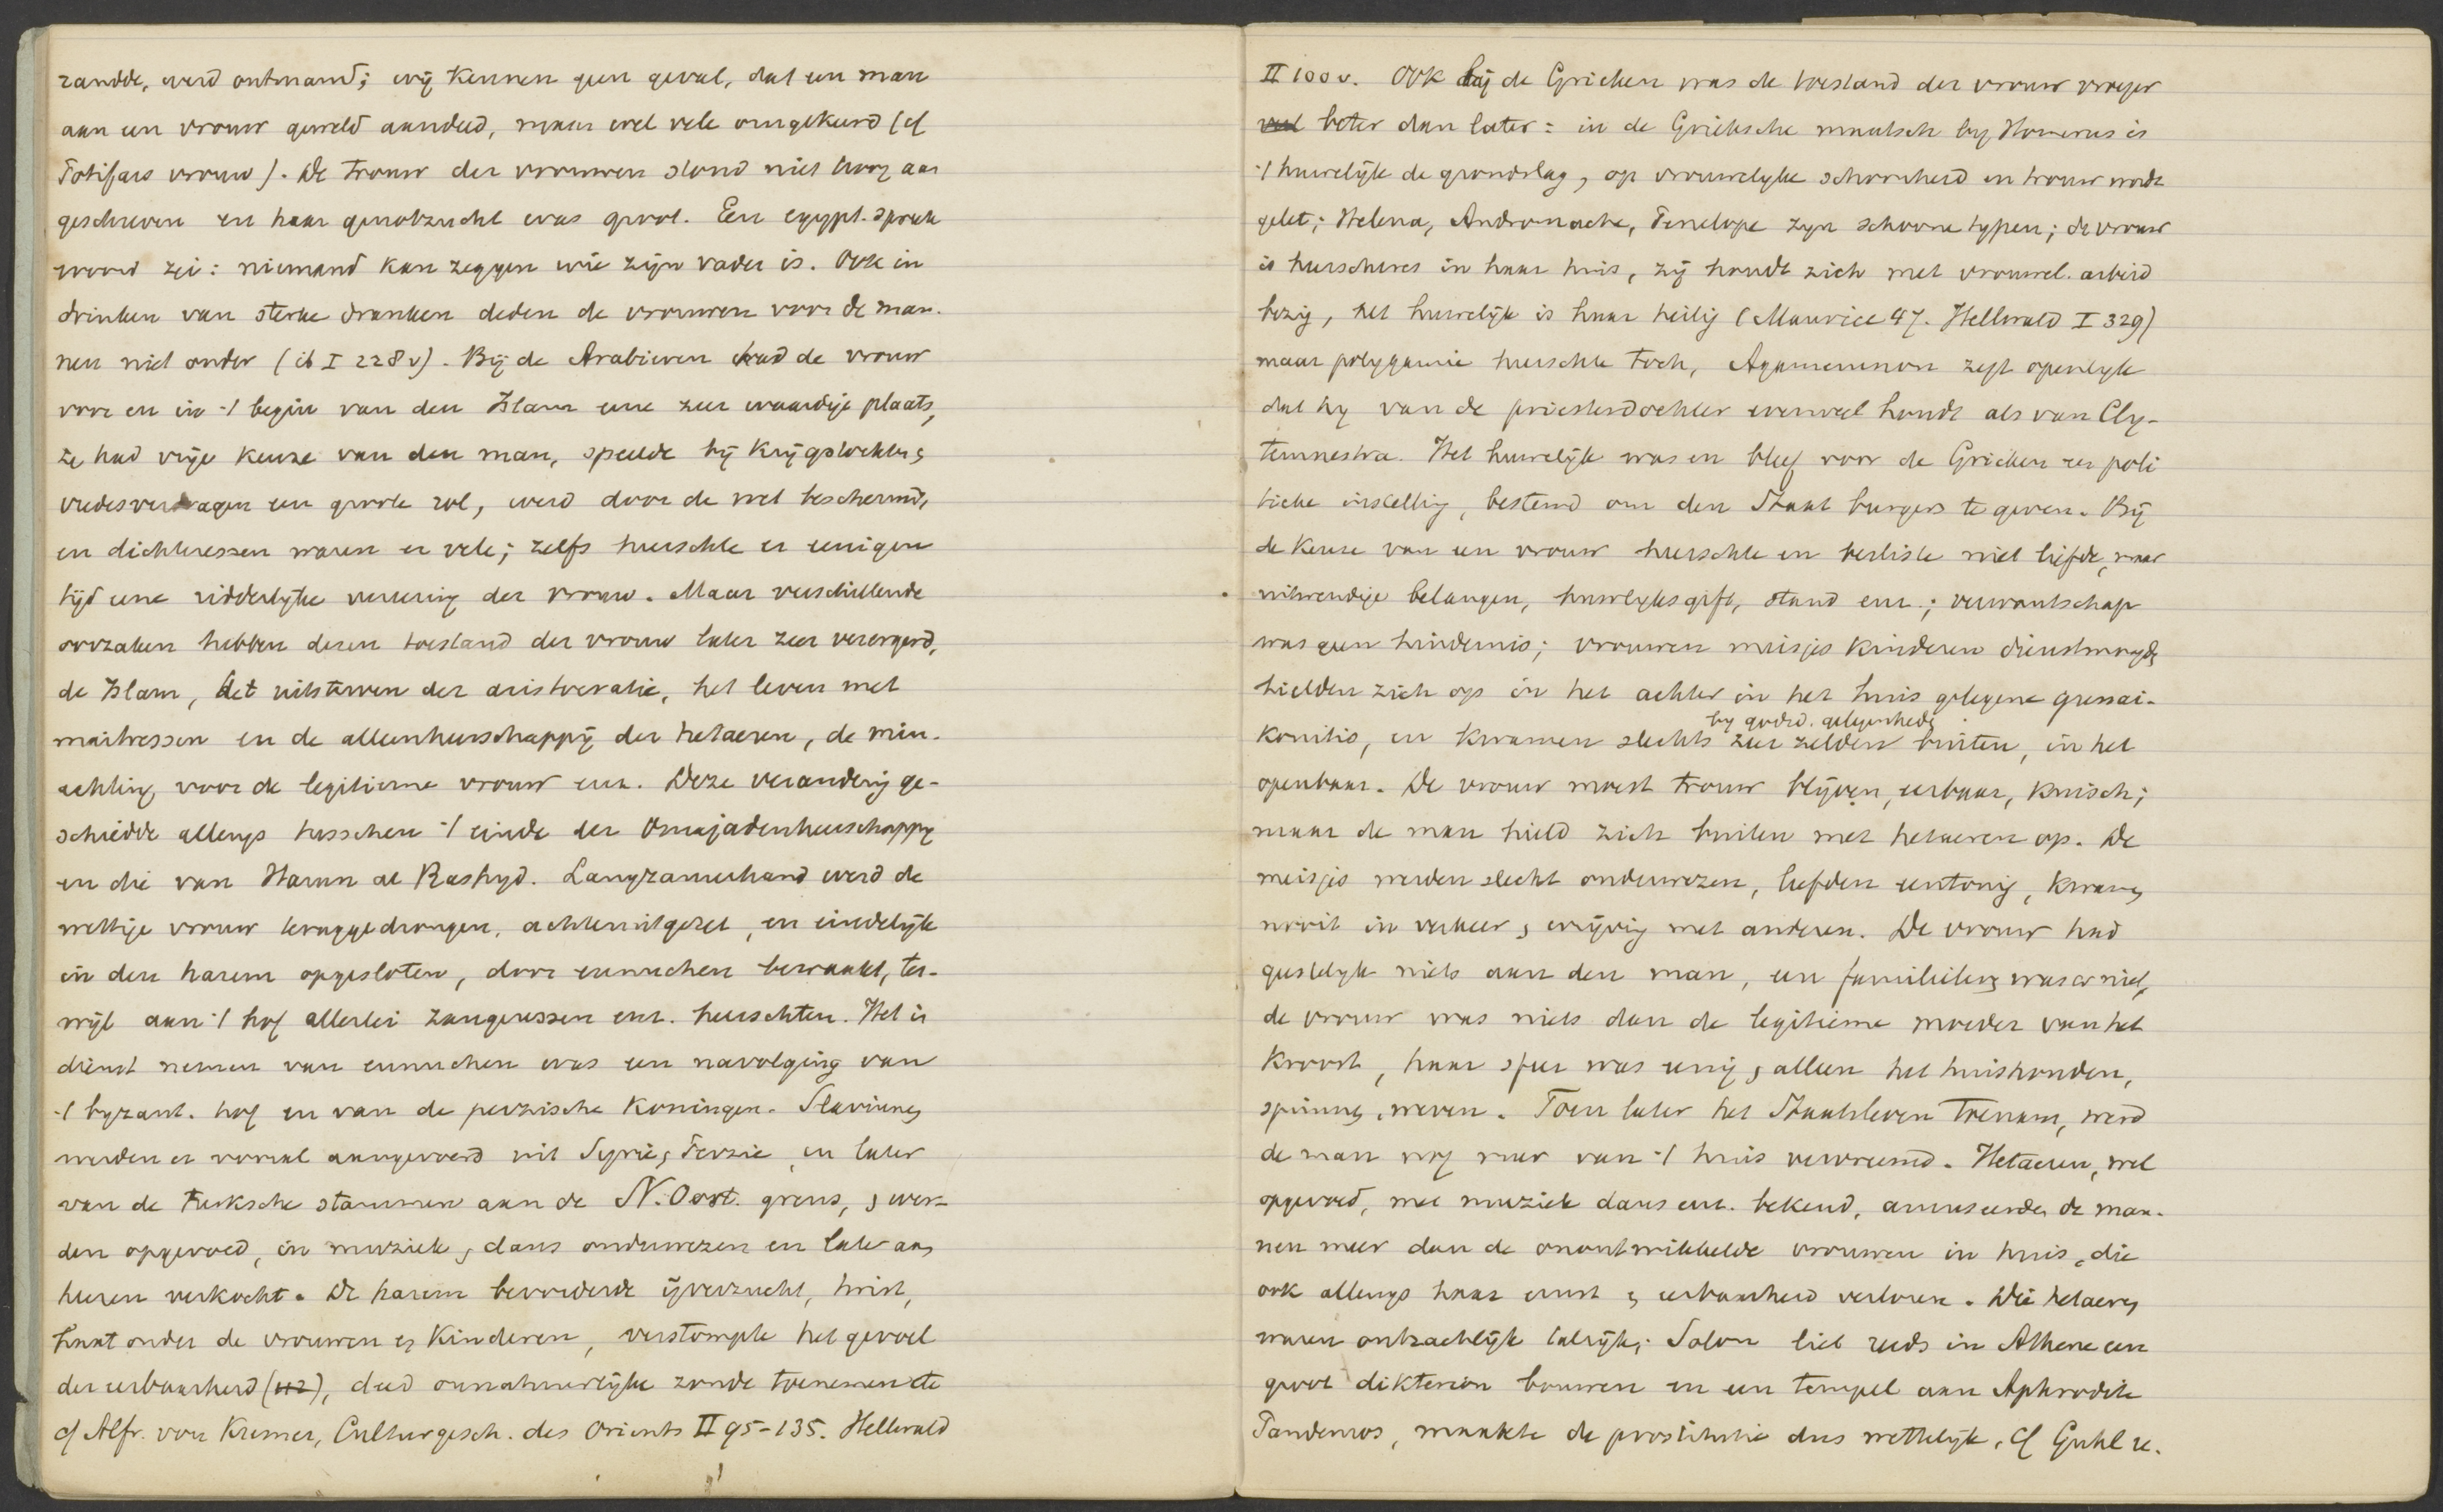 randde, werd ontmand; wij kennen geen geval, dat een man
aan een vrouw geweld aandeed, maar wel vele omgekeerd (cf
Potifars vrouw). De trouw der vrouwen stond niet hoog aan
geschreven en haar genotzucht was groot. Een egypt. spreek
woord zei: niemand kan zeggen wie zijn vader is. Ook in
drinken van sterke dranken deden de vrouwen voor de man-
nen niet onder (ib I 228 v). Bij de Arabieren had de vrouw
voor en in 't begin van den Islam eene zeer waardige plaats,
ze had vrije keuze van den man, speelde bij krijgstochten,
vredesverdragen een groote rol, werd door de wet beschermd,
en dichteressen waren er vele; zelfs heerschte er eenigen
tijd eene ridderlijke vereering der vrouw. Maar verschillende
oorzaken hebben dezen toestand der vrouw later zeer verergerd,
de Islam, het uitsterven der aristocratie, het leven met
maitressen en de alleenheerschappij der hetaeren, de min-
achting voor de legitieme vrouw enz. Deze verandering ge-
schiedde allengs tusschen 't einde der Omajadenheerschappy
en die van Harun al Rashyd. Langzamerhand werd de
wettige vrouw teruggedrongen, achteruitgezet, en eindelijk
in den harem opgesloten, door eunuchen bewaakt, ter-
wijl aan 't hof allerlei zangeressen enz. heerschten. Het in
dienst nemen van eunuchen was een navolging van
't byzant. hof en van de perzische koningen. Slavinnen
werden er vooral aangevoerd uit Syrie, Perzie, en later
van de turksche stammen aan de N. Oost. grens, , wer-
den opgevoed, in muziek, dans onderwezen en later aan
heeren verkocht. De harem bevorderde ijverzucht, twist,
haat onder de vrouwen en kinderen, verstompte het gevoel
der eerbaarheid (112), deed onnatuurlijke zonde toenemen etc
cf Alfr. von Kremer, Culturgesch. des Orients II 95-135. Hellwald
II 100 v. Ook bij de Grieken was de toestand der vrouw vroeger
veel beter dan later: in de Grieksche maatsch by Homerus is
't huwelijk de grondslag, op vrouwelyke schoonheid en trouw wordt
gelet; Helena, Andromache, Penelope zyn schoone typen; de vrouw
is heerscheres in haar huis, zij houdt zich met vrouwel. arbeid
bezig, het huwelijk is haar heilig (Maurice 47. Hellwald I 329)
maar polygamie heerschte toch, Agamemnon zegt openlyk
dat hy van de priesterdochter evenveel houdt als van Cly-
temnestra. Het huwelijk was en bleef voor de Grieken een poli
tieke instelling, bestemd om den Staat burgers te geven. Bij
de keuze van een vrouw heerschte en besliste niet liefde, maar
uitwendige belangen, huwelyksgift, stand enz.; verwantschap
was geen hindernis; vrouwen meisjes kinderen dienstmaagden
hielden zich op in het achter in het huis gelegene
by godsd. gelegenheden
konitis, en kwamen slechts zeer zelden buiten, in het
openbaar. De vrouw moest trouw blijven, eerbaar, kuisch;
maar de man hield zich buiten met hetaeren op. De
meisjes werden slecht onderwezen, leefden eentonig, kwamen
nooit in verkeer, wrijving met anderen. De vrouw had
geestelyk niets aan den man, een familieleven was er niet,
de vrouw was niets dan de legitieme moeder van het
kroost, haar sfeer was eenig, alleen het huishouden,
spinnen, weven. Toen later het Staatsleven toenam, werd
de man nog meer van 't huis vervreemd. Hetaeren, wel
opgevoed, met muziek dans enz. bekend, amuseerden de man-
nen meer dan de onontwikkelde vrouwen in huis, die
ook allengs haar ernst en eerbaarheid verloren. Die hetaeren
waren ontzachlijk talrijk; Solon liet reeds in Athene een
groot dikterion bouwen en een tempel aan Aphrodite
Pandemos, maakte de prostitutie dus wettelijk, cf Guhl u.